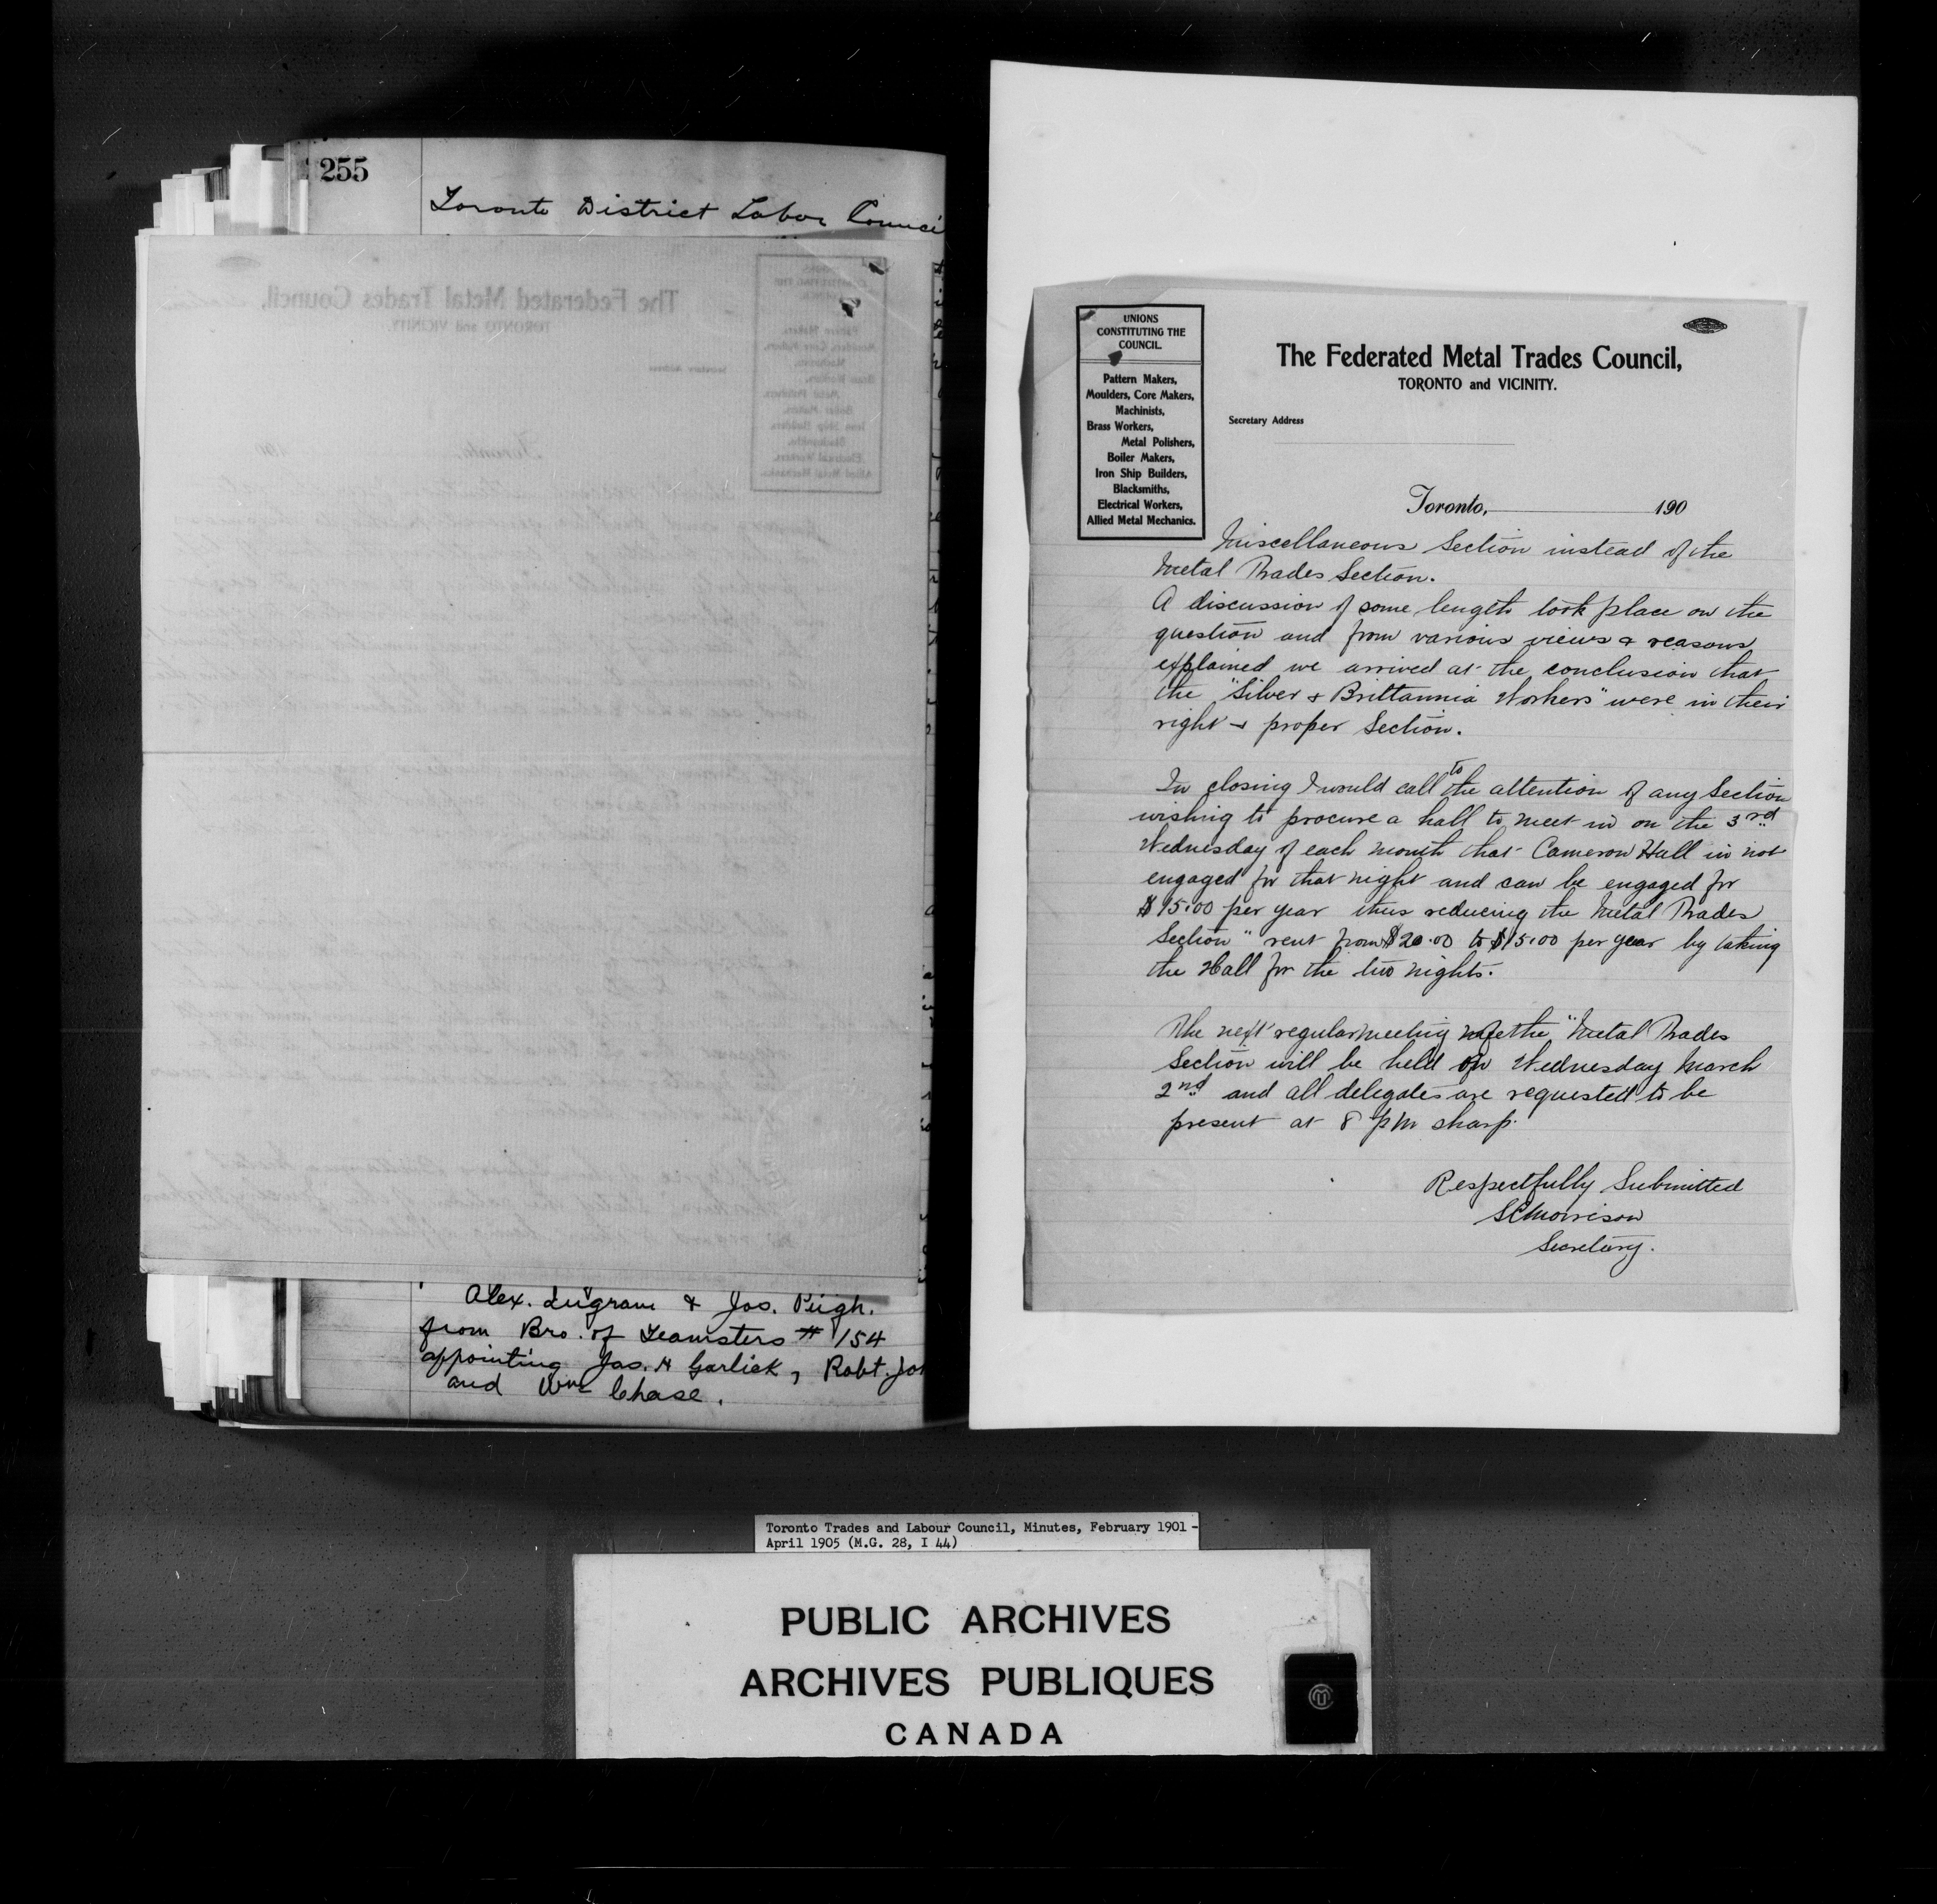 255
Toronto District Labor Counci
Alex. Ingram & Jas. Pugh.
from Bro. of Teamsters # 154
appointing Jas. H Garlick, Robt. Jo
and Wm Chase.
UNIONS
CONSTITUTING THE
COUNCIL.
Pattern Makers,
Moulders, Core Makers,
Machinists,
Brass Workers,
Metal Polishers,
Boiler Makers,
Iron Ship Builders,
Blacksmiths,
Electrical Workers,
Allied Metal Mechanics.
The Federated Metal Trades Council,
TORONTO and VICINITY.
Secretary Address
Toronto, 190
Miscellaneous Section instead of the
Metal Trades Section.
A discussion of some length took place on the
question and from various views & reasons
explained we arrived at the conclusion that
the "Silver & Brittannia Workers" were in their
right & proper Section.
In closing I would call to the attention of any Section
wishing to procure a hall to meet in on the 3rd
Wednesday of each month that Cameron Hall in not
engaged for that night and can be engaged for
$15.00 per year thus reducing the Metal Trades
Section" rent from $20.00 to $15.00 per year by taking
the Hall for the two nights.
The next regular meeting of the "Metal Trades
Section will be held on Wednesday March
2nd and all delegates are requested to be
present at 8 pm sharp.
Respectfully Submitted
SCMorrison
Secretary.
Toronto Trades and Labour Council, Minutes, February 1901 -
April 1905 (M.G. 28, I 44)
PUBLIC ARCHIVES
ARCHIVES PUBLIQUES
CANADA